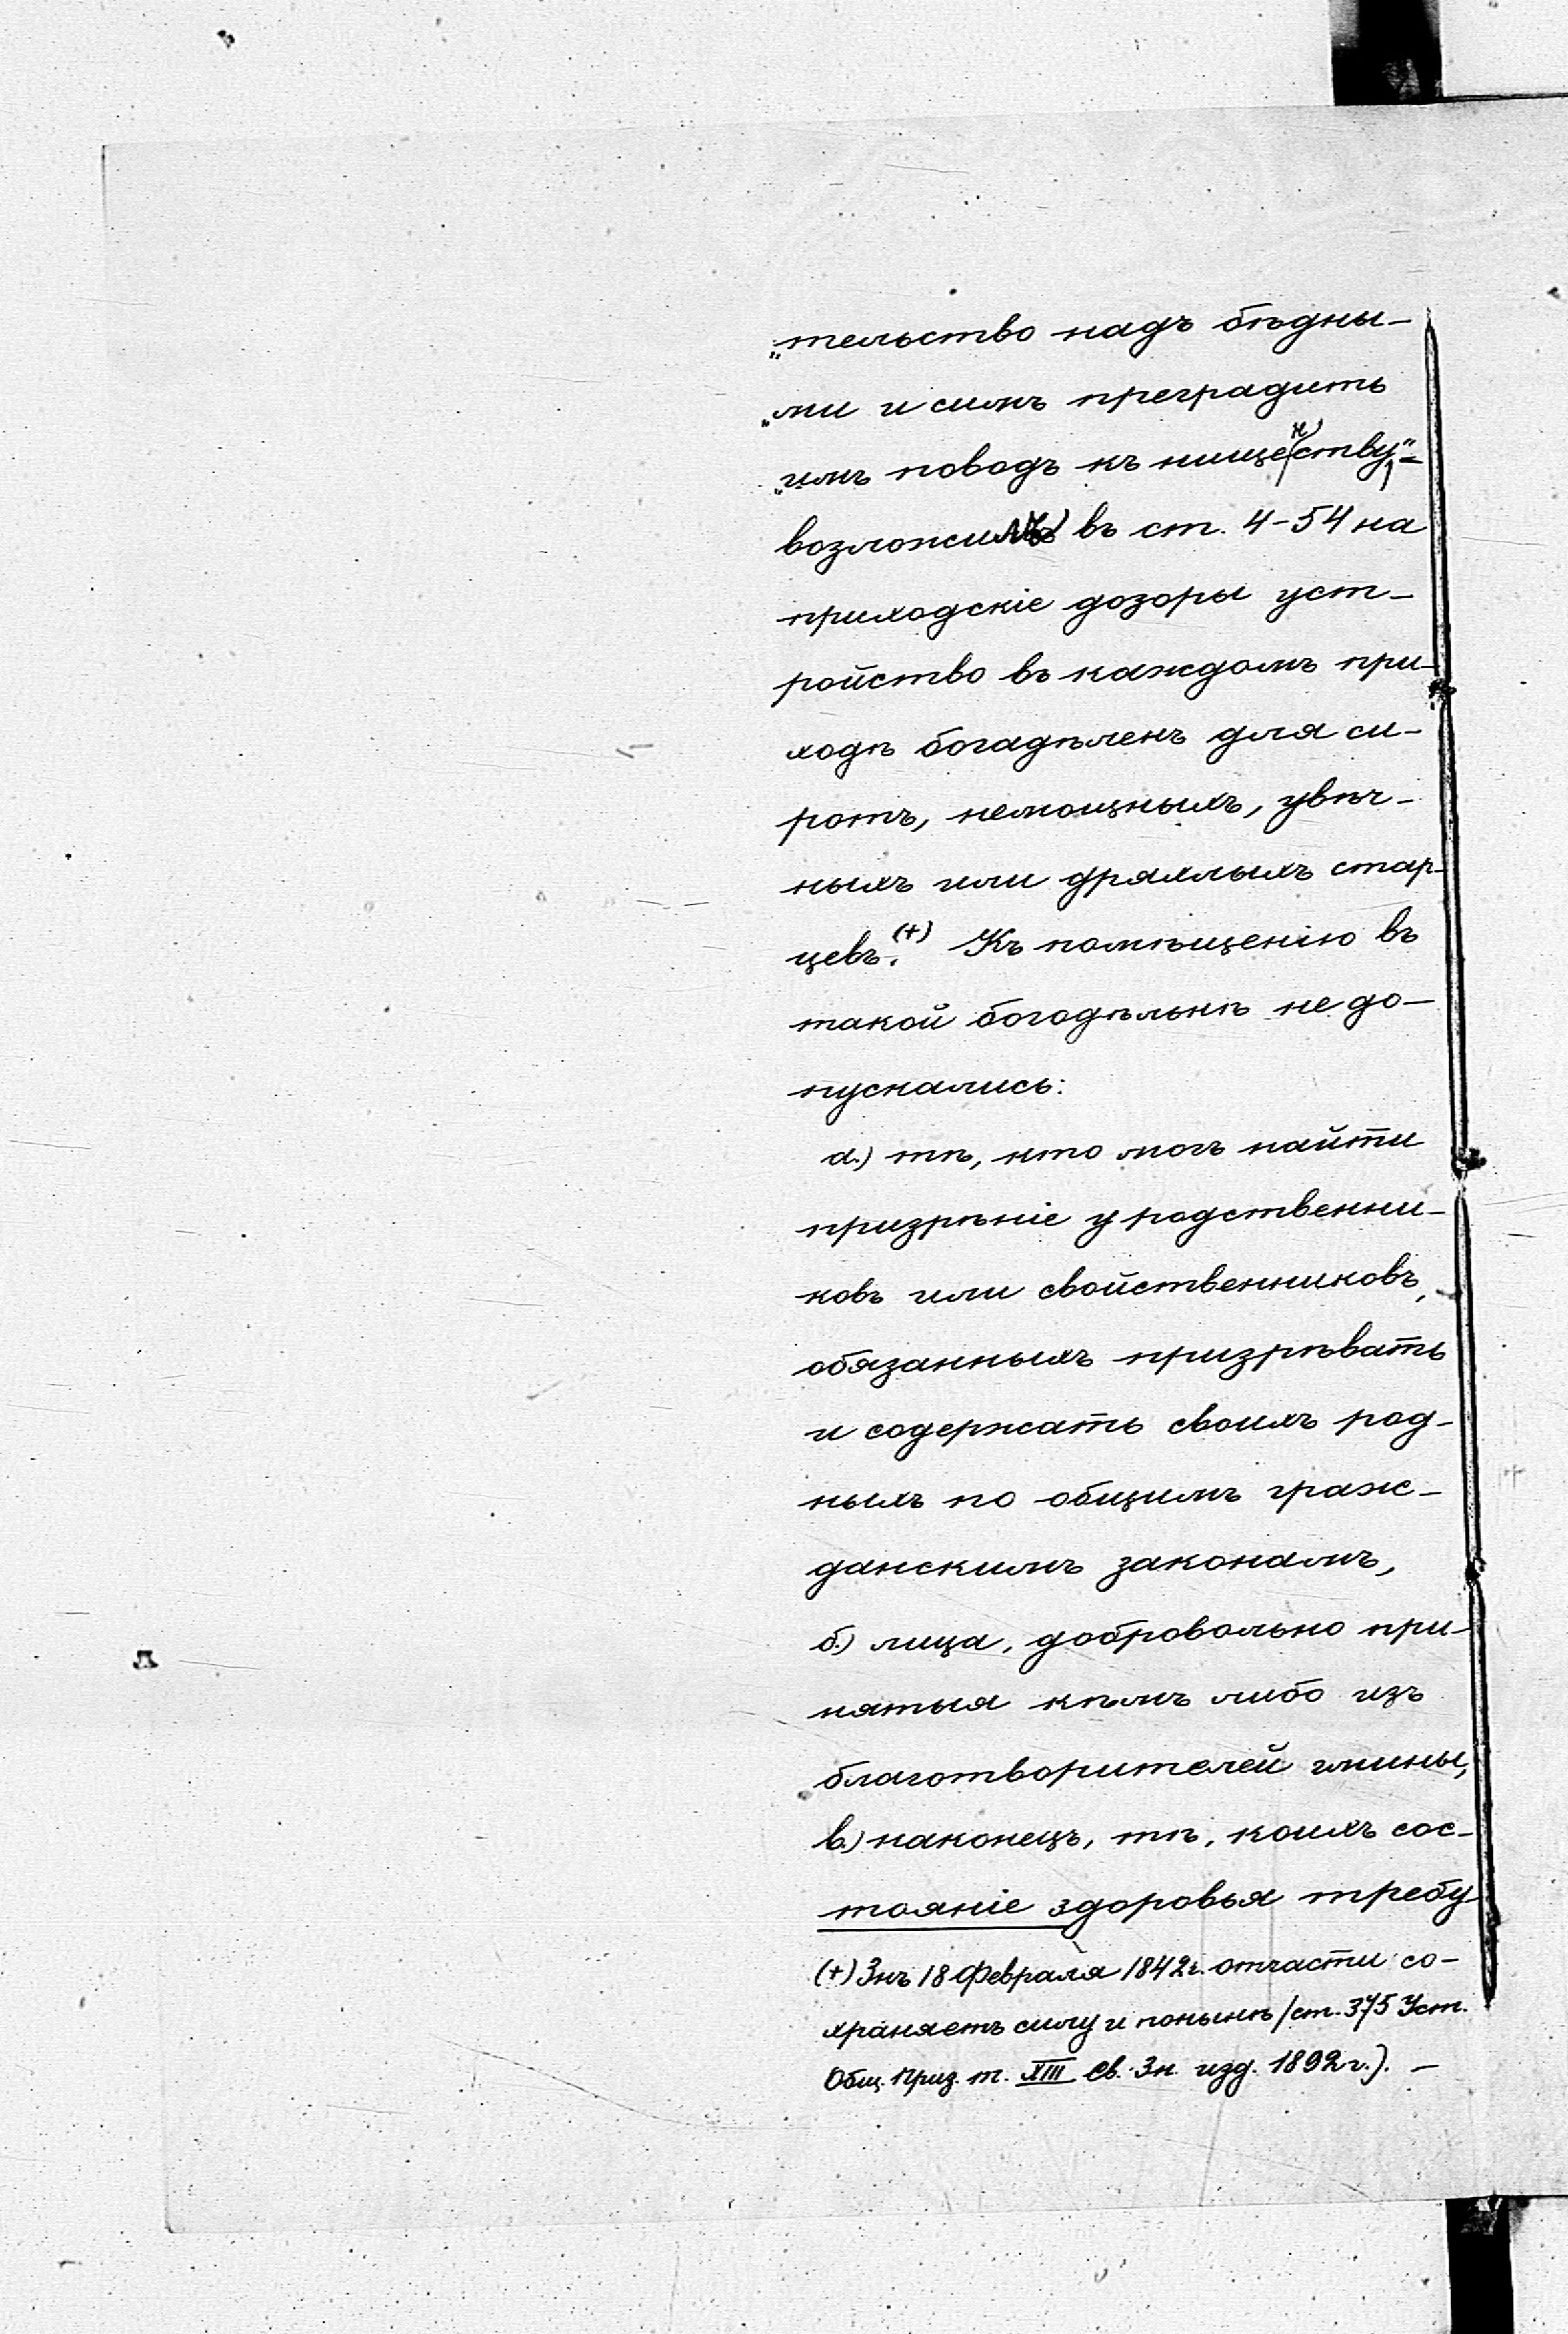 „тельство надъ бѣдны-
„ми и симъ преградить
„имъ поводъ къ нищенству,“ =
возложилъ въ ст. 4-54 на
приходскіе дозоры уст-
ройство въ каждомъ при-
ходѣ богадѣленъ для си-
ротъ, немощныхъ, увѣч-
ныхъ или дряхлыхъ стар-
цевъ.(+) Къ помѣщенію въ
такой богодѣльнѣ не до-
пускались:
а.) тѣ, кто могъ найти
призрѣніе у родственни-
ковъ или свойственниковъ,
обязанныхъ призрѣвать
и содержать своихъ род-
ныхъ по общимъ граж-
данскимъ законамъ,
б.) лица, добровольно при-
нятыя кѣмъ либо изъ
благотворителей гмины,
в.) наконецъ, тѣ, коихъ сос-
тояніе здоровья требу-
(+) Знъ 18 Февраля 1842 г. отчасти со-
храняетъ силу и понынѣ /ст. 375 Уст.
Общ. Приз. т. XIII Св. Зн. изд. 1892 г.). -